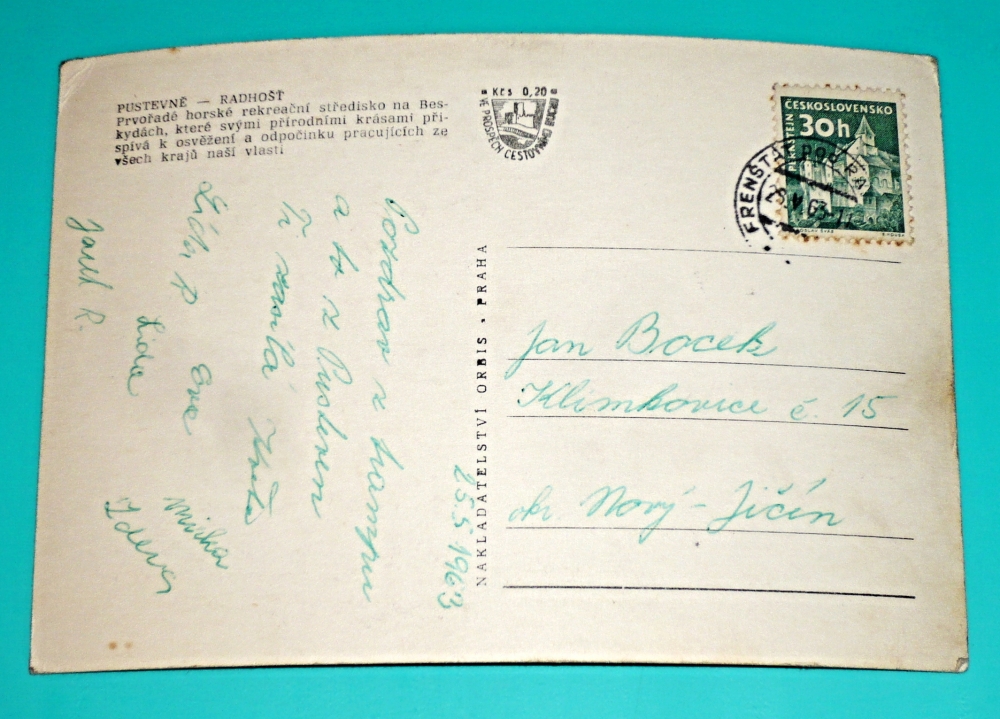 PUSTEVNĚ — RADHOŠŤ
Prvořadé horské rekreační středisko na Bes-
kydách, které svými přírodními krásami při-
spívá k osvěžení a odpočinku pracujících ze
všech krajů naší vlasti
Kčs 0,20
VE PROSPĚCH CESTOVNÍHO RUCHU
ČESKOSLOVENSKO
30h
PERNŠTEJN
FRENŠTÁT POD
63
NAKLADATELSTVÍ ORBIS • PRAHA
25.5 1963
Pozdrav z trampu
a to z Pusteven
Ti zasílá Květa
Eva
Lida
Jarek R.
Jan Bocek
Klimkovice č. 15
okr Nový-Jičín